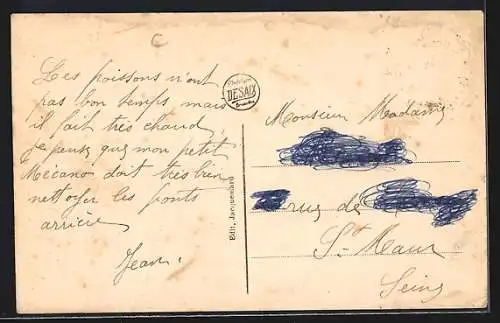 Les poissons n'ont
pas bon temps mais
il fait très chaud
je pense que mon petit
Mecano doit très bien
nettoyer les ponts
arrière
Jean.
DESAIX
Edit. Jacquemard
Monsieur Madame
rue de
St Maur
Seine